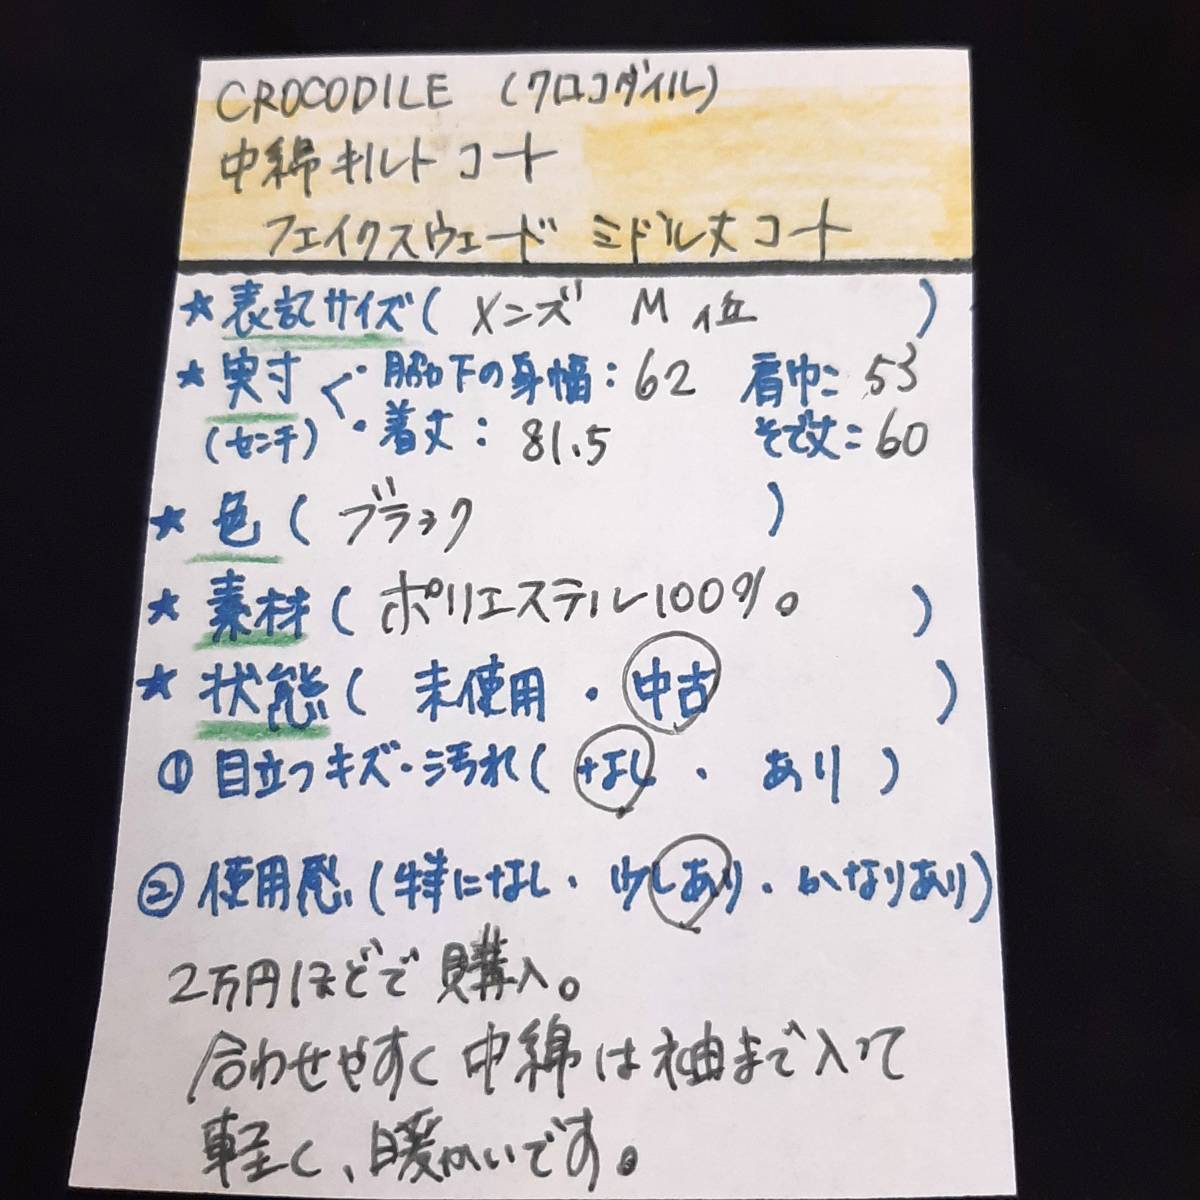 CROCODILE (クロコダイル)
中綿キルトコート
フェイクスウェード ミドル丈コート
★表記サイズ( メンズ M位 )
★実寸く・脇下の身幅:62 肩巾:53
(センチ)・着丈:81.5 そで丈:60
★色( ブラック )
★素材( ポリエステル100%。 )
★状態( 未使用・中古 )
①目立つキズ・汚れ(なし・あり)
②使用感(特になし・少しあり・かなりあり)
2万円ほどで購入。
合わせやすく中綿は袖まで入って
軽く、暖かいです。